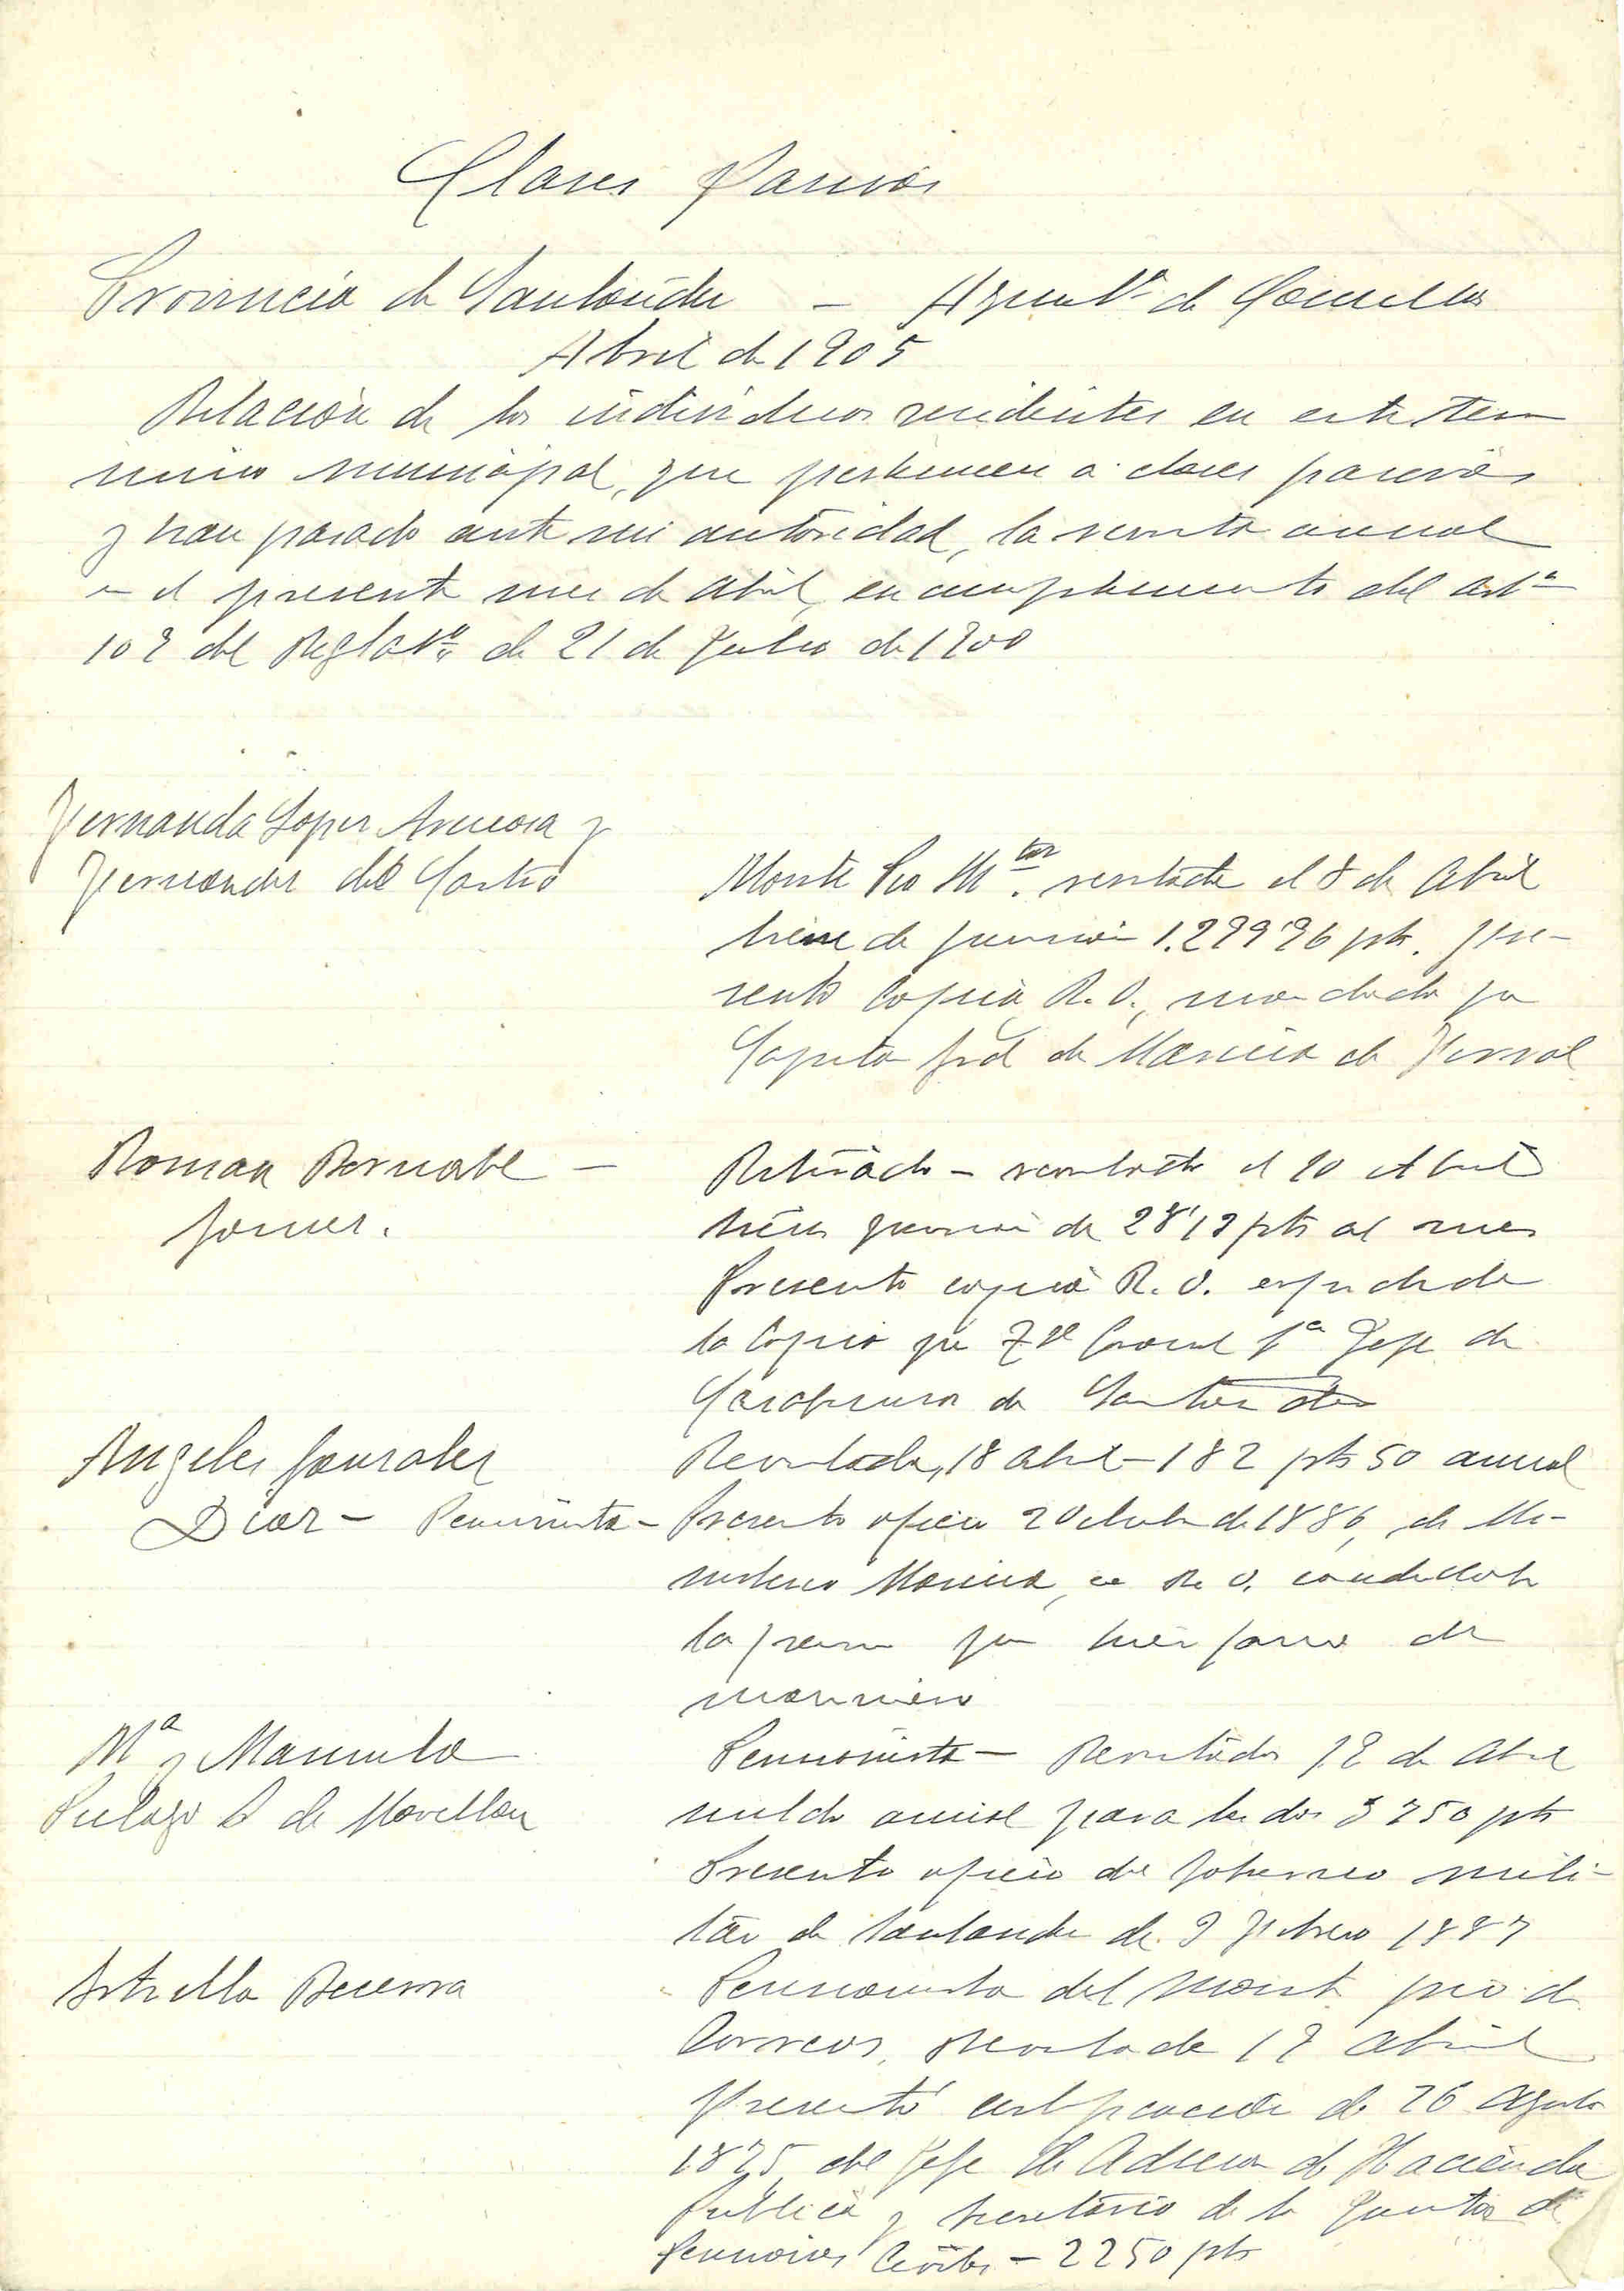 Clases Pasivas
Provincia de Santander - Ayuntº de Comillas
Abril de 1905
Relación de los individuos residentes en este tér
mino municipal, que pertenecen a clases pasivas
y han pasado ante mi autoridad, la revista anual
en el presente mes de Abril, en cumplimiento del artº
109 del Reglatº de 21 de Julio de 1900
Fernanda Lopez Arenosa y
Fernandez de Castro
Monte Pio Mtar. revistada el 8 de Abril
tiene de pension 1.299'96 pts. Pre-
sentó copia R. O.,
Capitan Gral de Marina de Ferrol
Roman Bernabe -
Gomez.
Retirado - revistado el 10 Abril
tiene pension de 28'13 pts al mes
Presentó copia R. O. expedida
la copia por Tte Coronel 1er Jefe de
Carabineros de Santander
Angeles Gonzalez
Diaz - Pensionista -
Revistada, 18 Abril - 182 pts 50 anual
Presentó oficio 2 Octubre de 1886, de Mi-
nisterio Marina, R. O.
la pension por huerfana de
marinero
Mª y Manuela
Pielago S de Movellan
Pensionista - Revistadas 12 de Abril
sueldo anual para las dos 3750 pts
Presentó oficio del Gobierno mili-
tar de Santander de 3 Febrero 1887
Estrella Becerra
Pensionista del Monte pio de
Correos, Revistada 17 Abril
Presentó certificación de 26 Agosto
1875 del Jefe de Admon de Hacienda
Publica y Secretario de la Junta de
Pensiones Civiles - 2250 pts